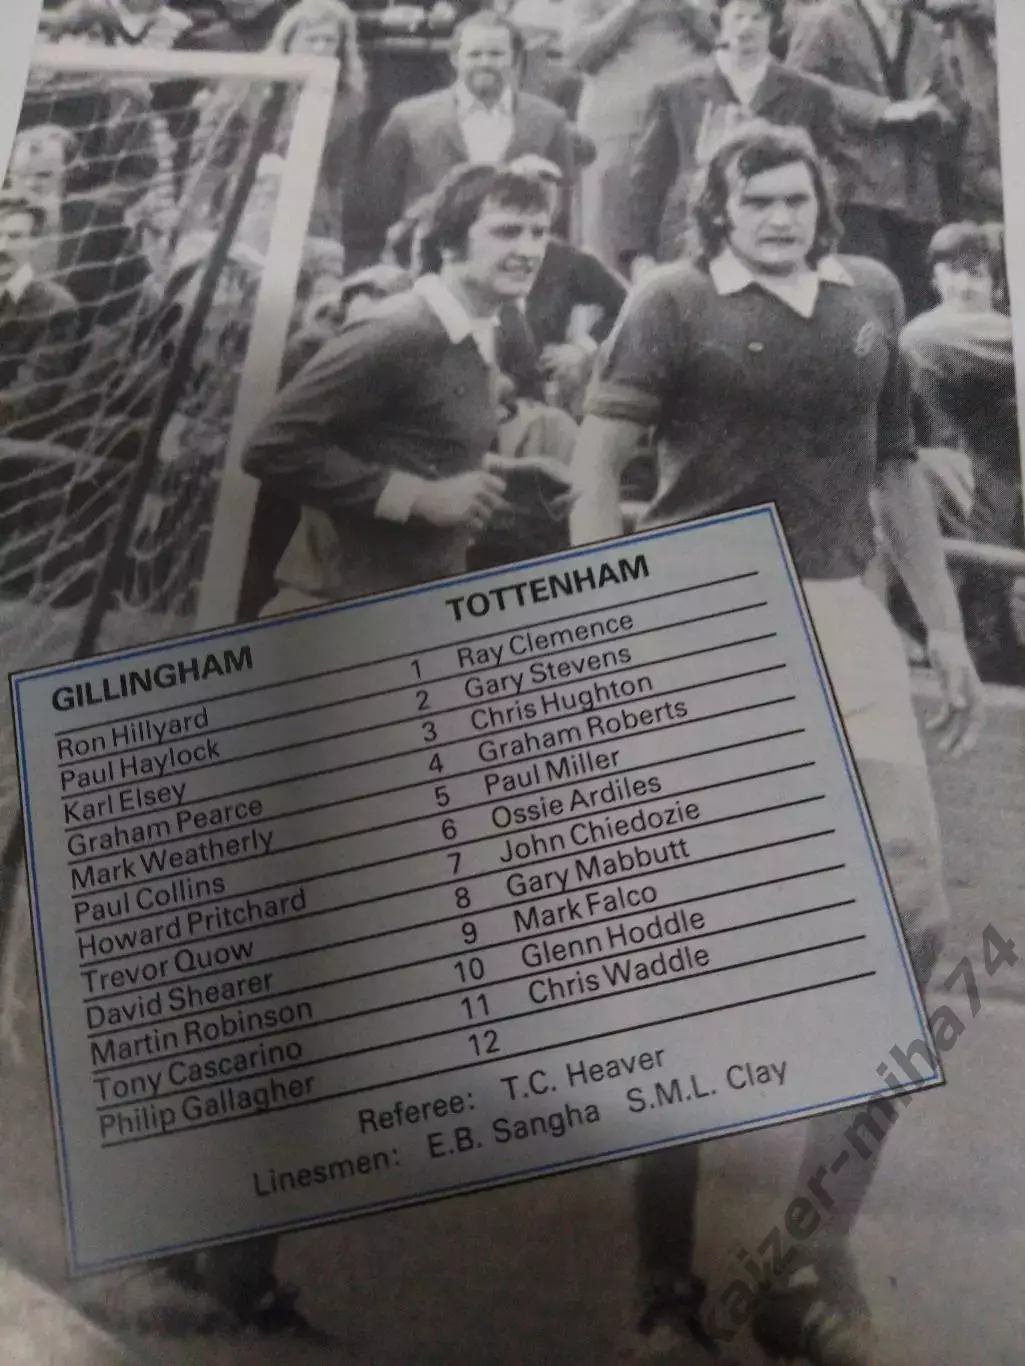 GILLINGHAM TOTTENHAM
Ron Hillyard 1 Ray Clemence
Paul Haylock 2 Gary Stevens
Karl Elsey 3 Chris Hughton
Graham Pearce 4 Graham Roberts
Mark Weatherly 5 Paul Miller
Paul Collins 6 Ossie Ardiles
Howard Pritchard 7 John Chiedozie
Trevor Quow 8 Gary Mabbutt
David Shearer 9 Mark Falco
Martin Robinson 10 Glenn Hoddle
Tony Cascarino 11 Chris Waddle
Philip Gallagher 12
Referee: T.C. Heaver
Linesmen: E.B. Sangha S.M.L. Clay
kaizer-miha74